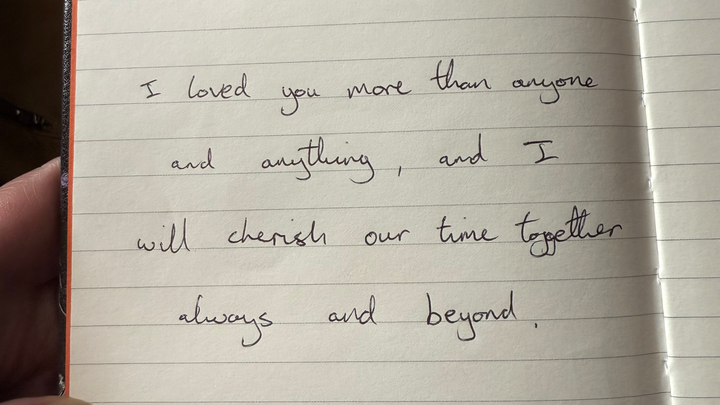 I loved you more than anyone
and anything, and I
will cherish our time together
always and beyond.